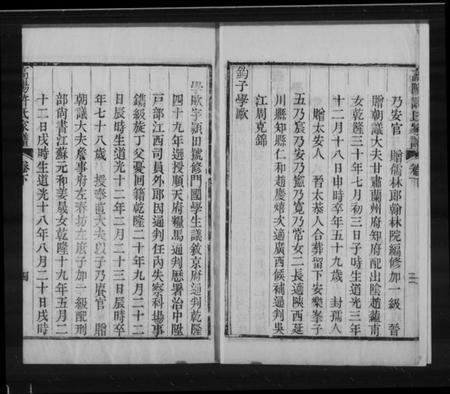 乃安官　贈儒林郎翰林院編修加一級晉
贈朝議大夫甘肅蘭州府知府配出繼趙蘊南
女乾隆三十年七月初三日子時生道光三年
十二月十八日申時卒年五十九歲　封孺人
贈太安人　晉太恭人合葬留下安樂峯子
五乃宸乃安乃乃竟乃常女二長適陝西延
川縣知縣仁和趙慶次適廣西候補通判吳
江周克錦
鈞子學歐
學歐字潁田號修門國學生議敘京府通判乾隆
四十九年選授順天府糧馬通判歷署治中陞
戶部江西司員外郎因通判任內失察科場事
鐫級旋丁父憂回籍乾隆二十年九月二十二
日辰時生道光十二年二月二十三日辰時卒
年七十八歲　授奉直大夫以子乃賡官　贈
朝議大夫詹事府左春坊左庶子加一級配刑
部尚書江蘇元和姜晟女乾隆十九年五月二
十二日戌時生道光十八年八月二十日戌時
高陽許氏家譜
卷下